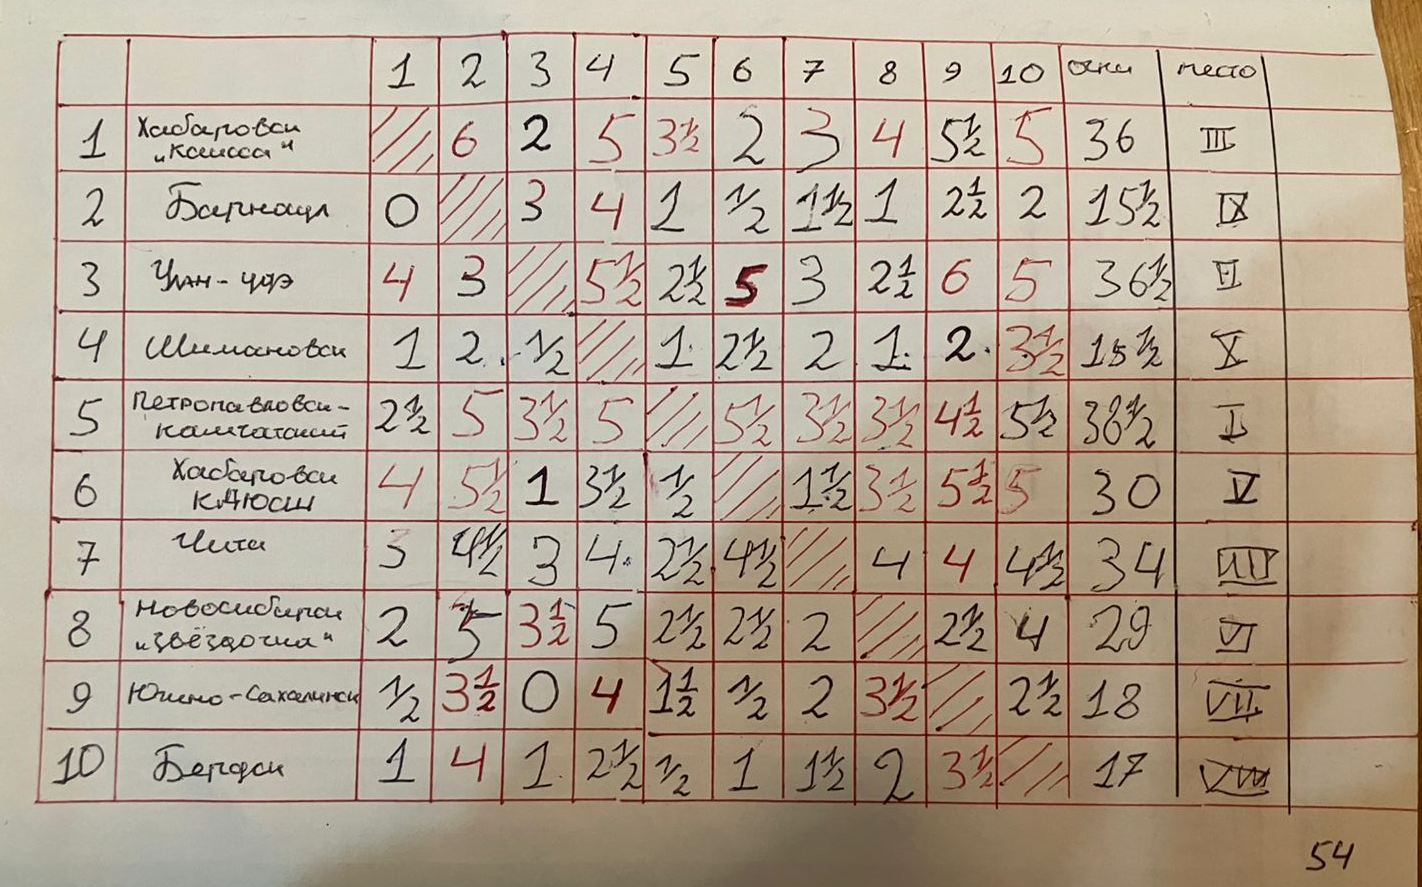 1 2 3 4 5 6 7 8 9 10 очки место
1 Хабаровск "Каисса" 6 2 5 3½ 2 3 4 5½ 5 36 III
2 Барнаул 0 3 4 1 ½ 1½ 1 2½ 2 15½ IX
3 Улан-Удэ 4 3 5½ 2½ 5 3 2½ 6 5 36½ II
4 Шимановск 1 2 ½ 1 2½ 2 1 2 3½ 15½ X
5 Петропавловск-Камчатский 2½ 5 3½ 5 5½ 3½ 3½ 4½ 5½ 38½ I
6 Хабаровск КДЮСШ 4 5½ 1 3½ ½ 1½ 3½ 5½ 5 30 V
7 Чита 3 4½ 3 4 2½ 4½ 4 4 4½ 34
8 Новосибирск "Звёздочка" 2 5 3½ 5 2½ 2½ 2 2½ 4 29 VI
9 Южно-Сахалинск ½ 3½ 0 4 1½ ½ 2 3½ 2½ 18 VII
10 Бердск 1 4 1 2½ ½ 1 1½ 2 3½ 17 VIII
54